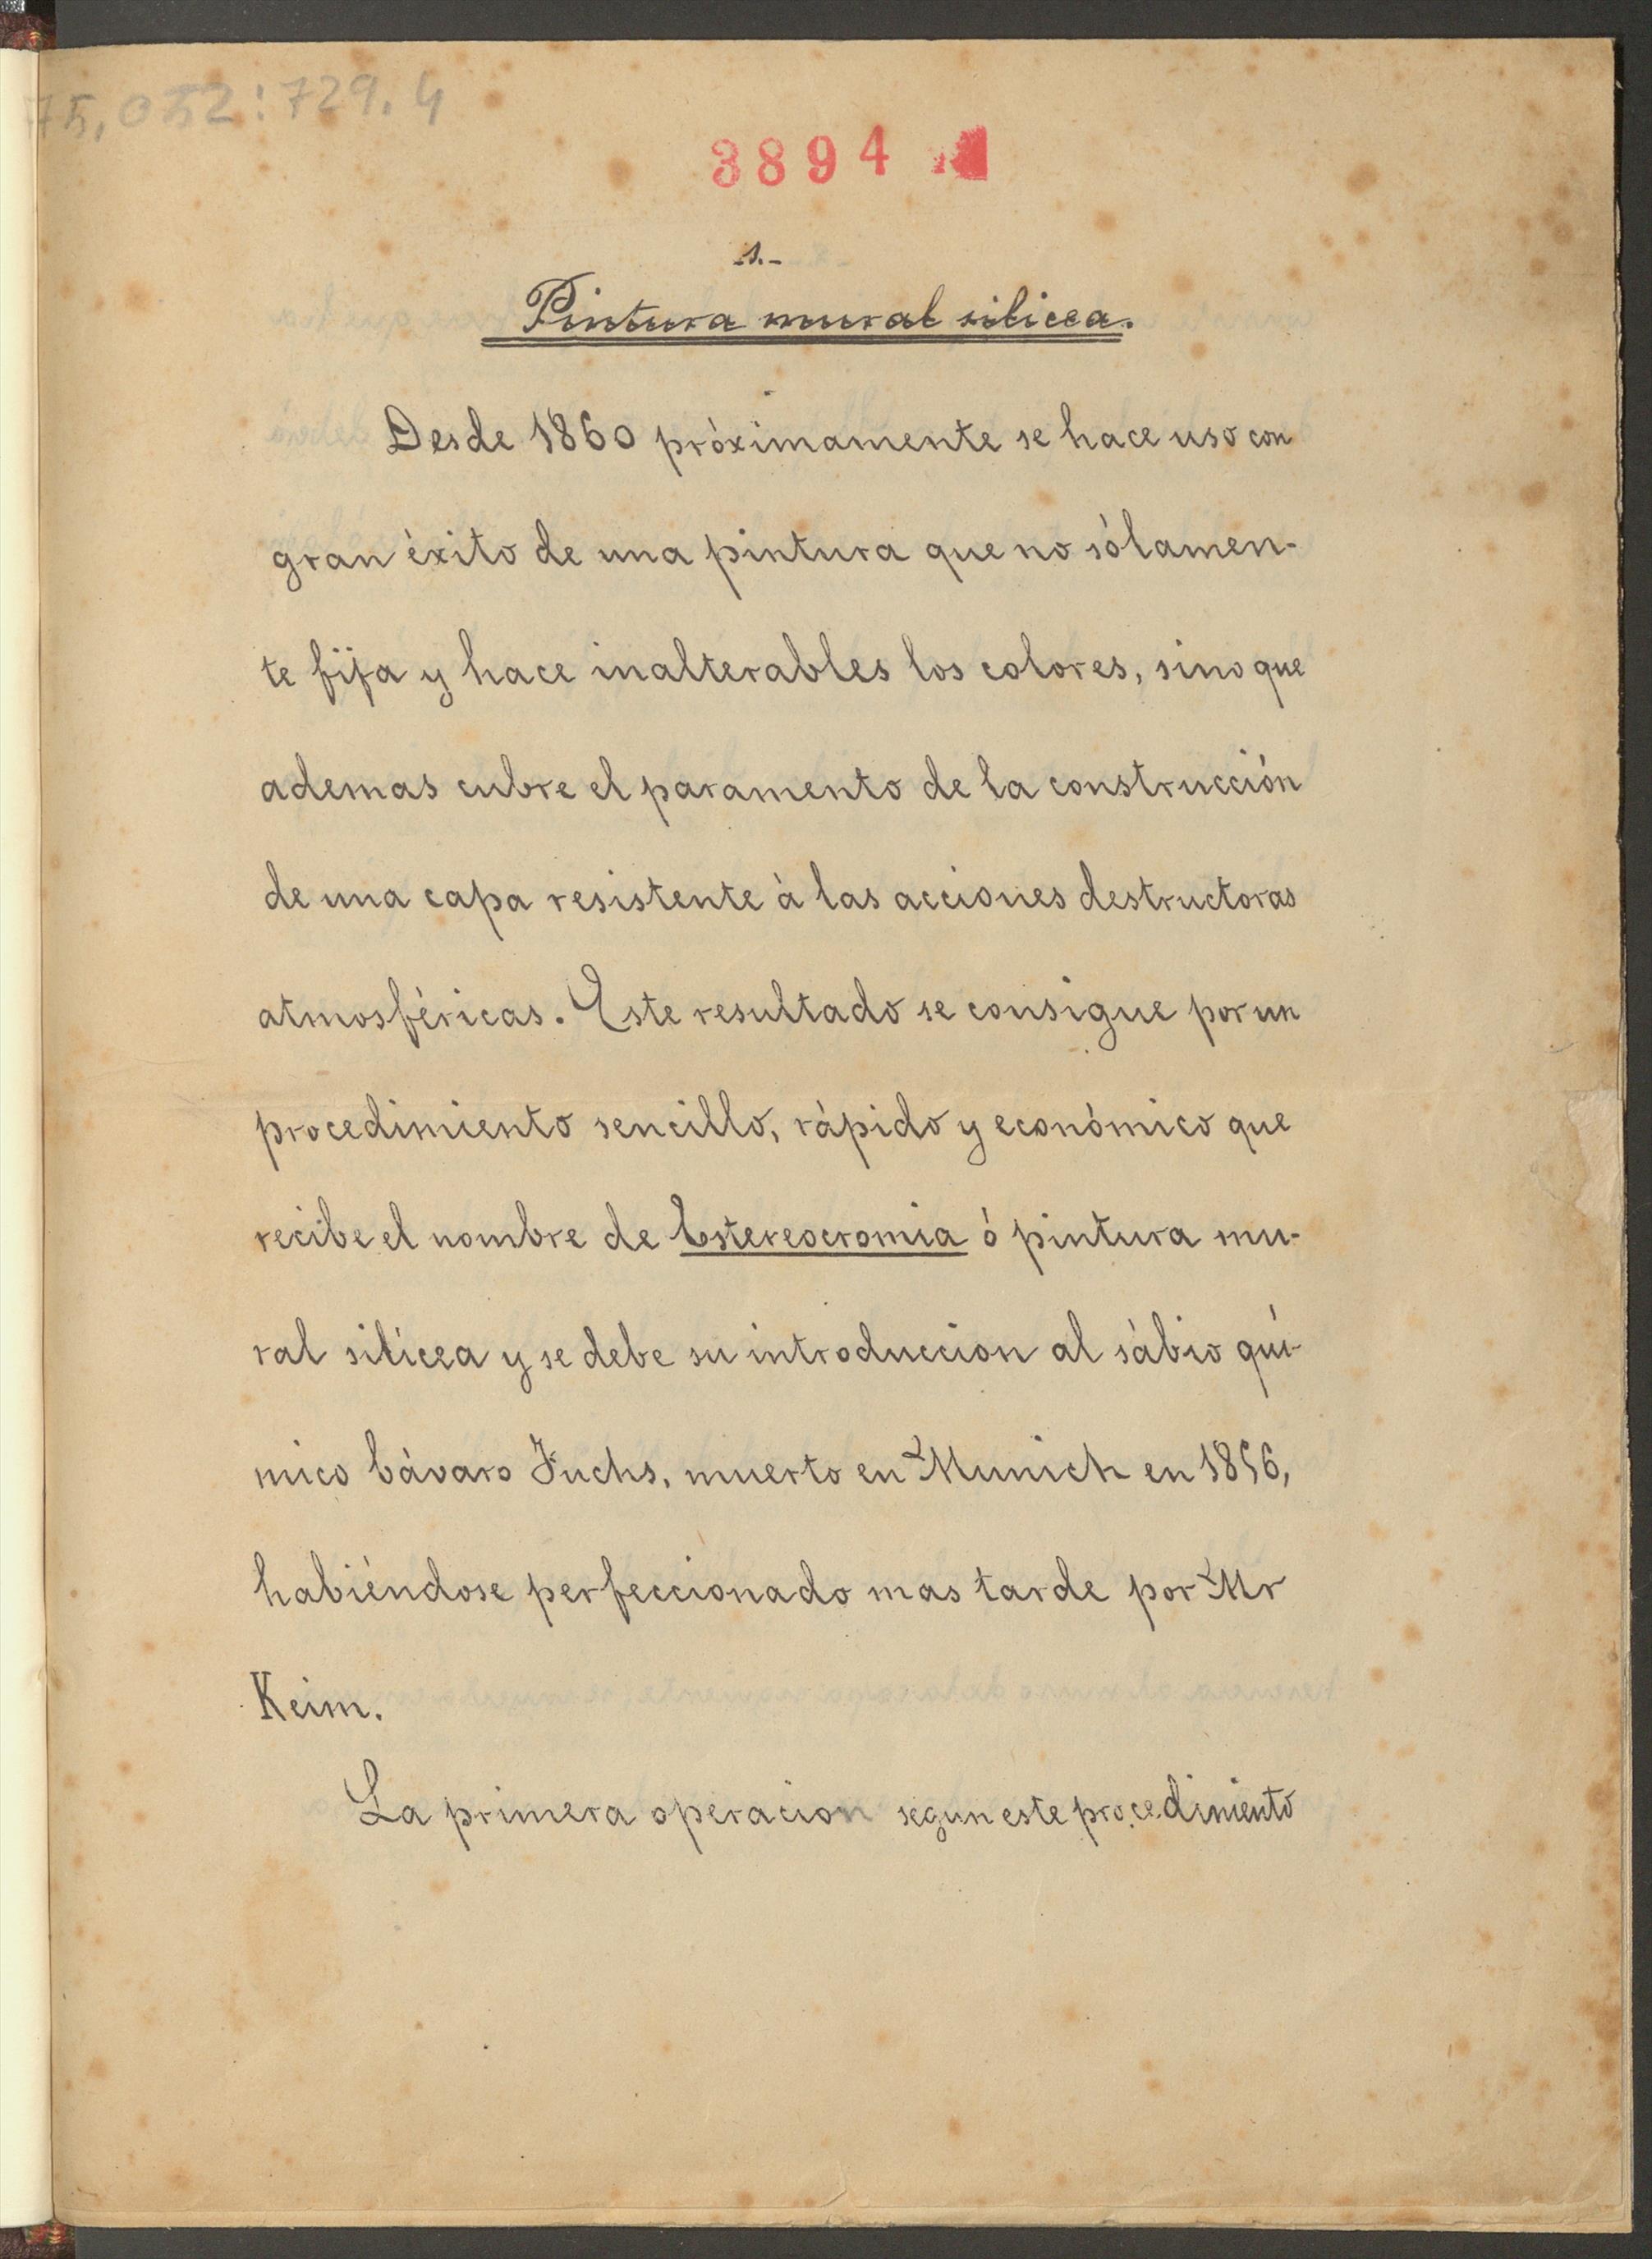 75,052:729.4
3894
-1.-
Pintura mural silicea.
Desde 1860 próximamente se hace uso con
gran èxito de una pintura que no sólamen-
te fija y hace inalterables los colores, sino que
ademas cubre el paramento de la construcción
de una capa resistente à las acciones destructoras
atmosféricas. Este resultado se consigue por un
procedimiento sencillo, ràpido y económico que
recibe el nombre de Estereocromia ó pintura mu-
ral silícea y se debe su introduccion al sàbio quí-
mico bàvaro Fuchs, muerto en Munich en 1856,
habiéndose perfeccionado mas tarde por Mr
Keim.
La primera operacion segun este procedimiento